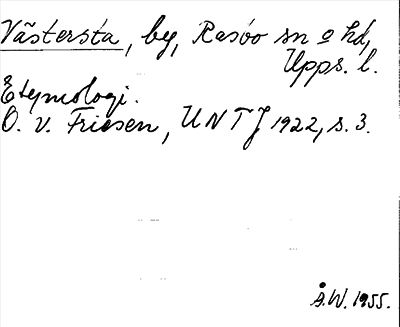 Västersta, by, Rasbo sn o hd,
Upps. l.
Etymologi.
O. v. Friesen, UNTJ 1922, s. 3.
Å.W. 1955.